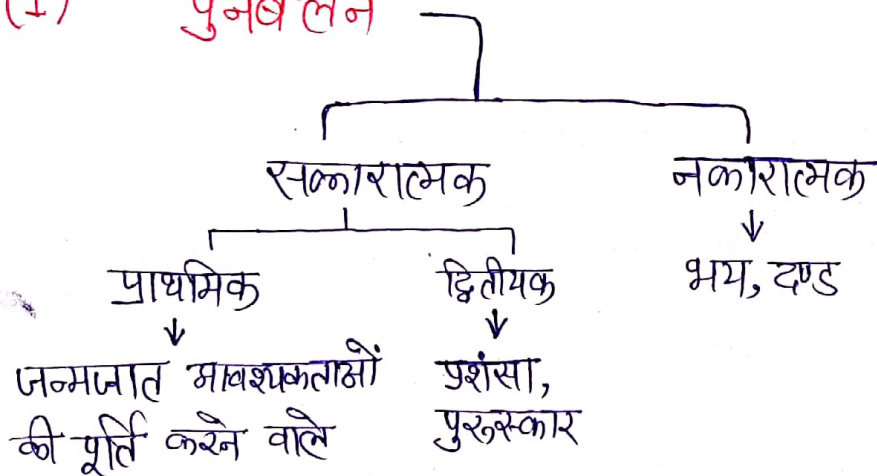 (1) पुनर्बलन
सकारात्मक नकारात्मक
प्राथमिक द्वितीयक भय, दण्ड
जन्मजात आवश्यकताओं प्रशंसा,
की पूर्ति करने वाले पुरुस्कार